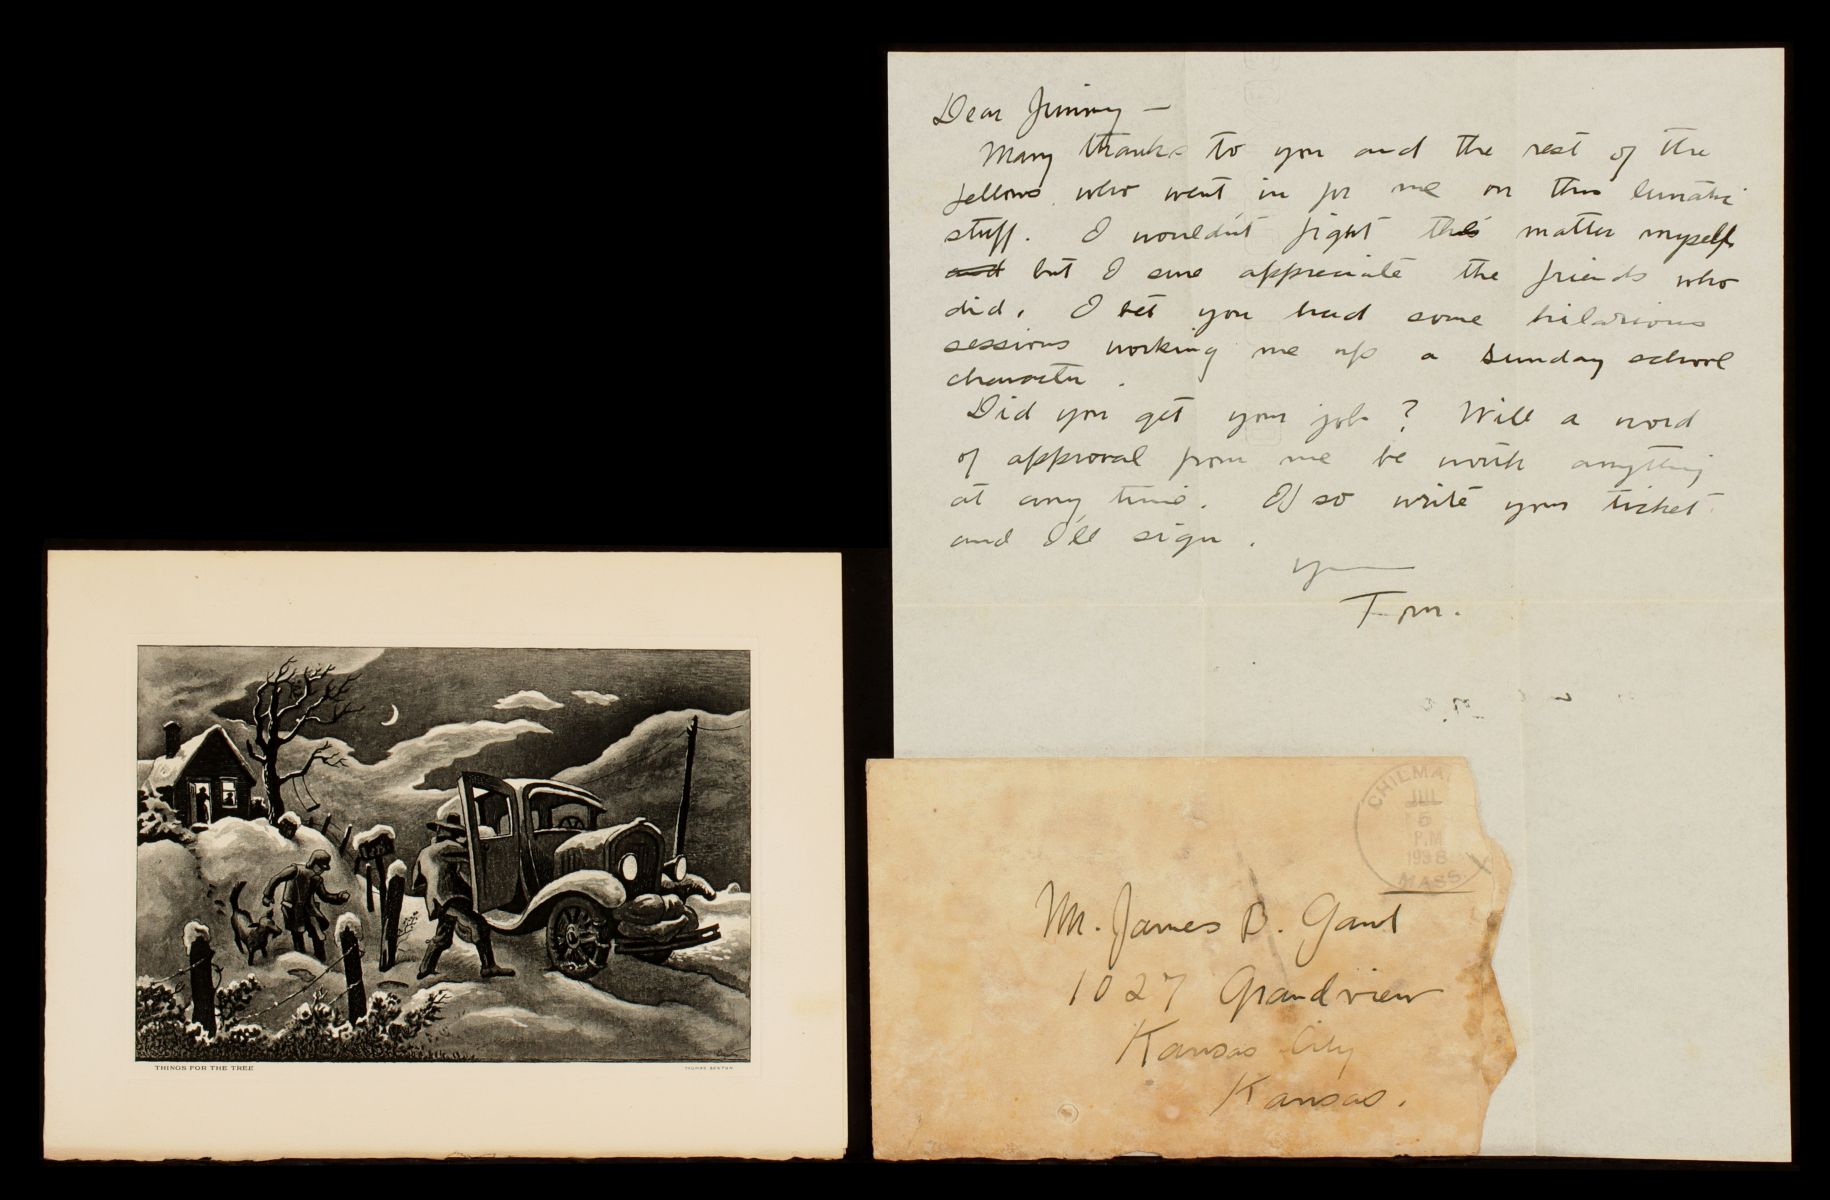 Dear Jimmy —
Many thanks to you and the rest of the
fellows who went in for me on this lunatic
stuff. I wouldn't fight this matter myself
and but I sure appreciate the friends who
did. I bet you had some hilarious
sessions working me up a Sunday school
character.
Did you get your job? Will a word
of approval from me be worth anything
at any time. If so write your ticket
and I'll sign.
Tom.
THINGS FOR THE TREE
THOMAS BENTON
JUL
P.M
193
MASS
Mr. James B. Gant
1027 Grandview
Kansas City
Kansas.